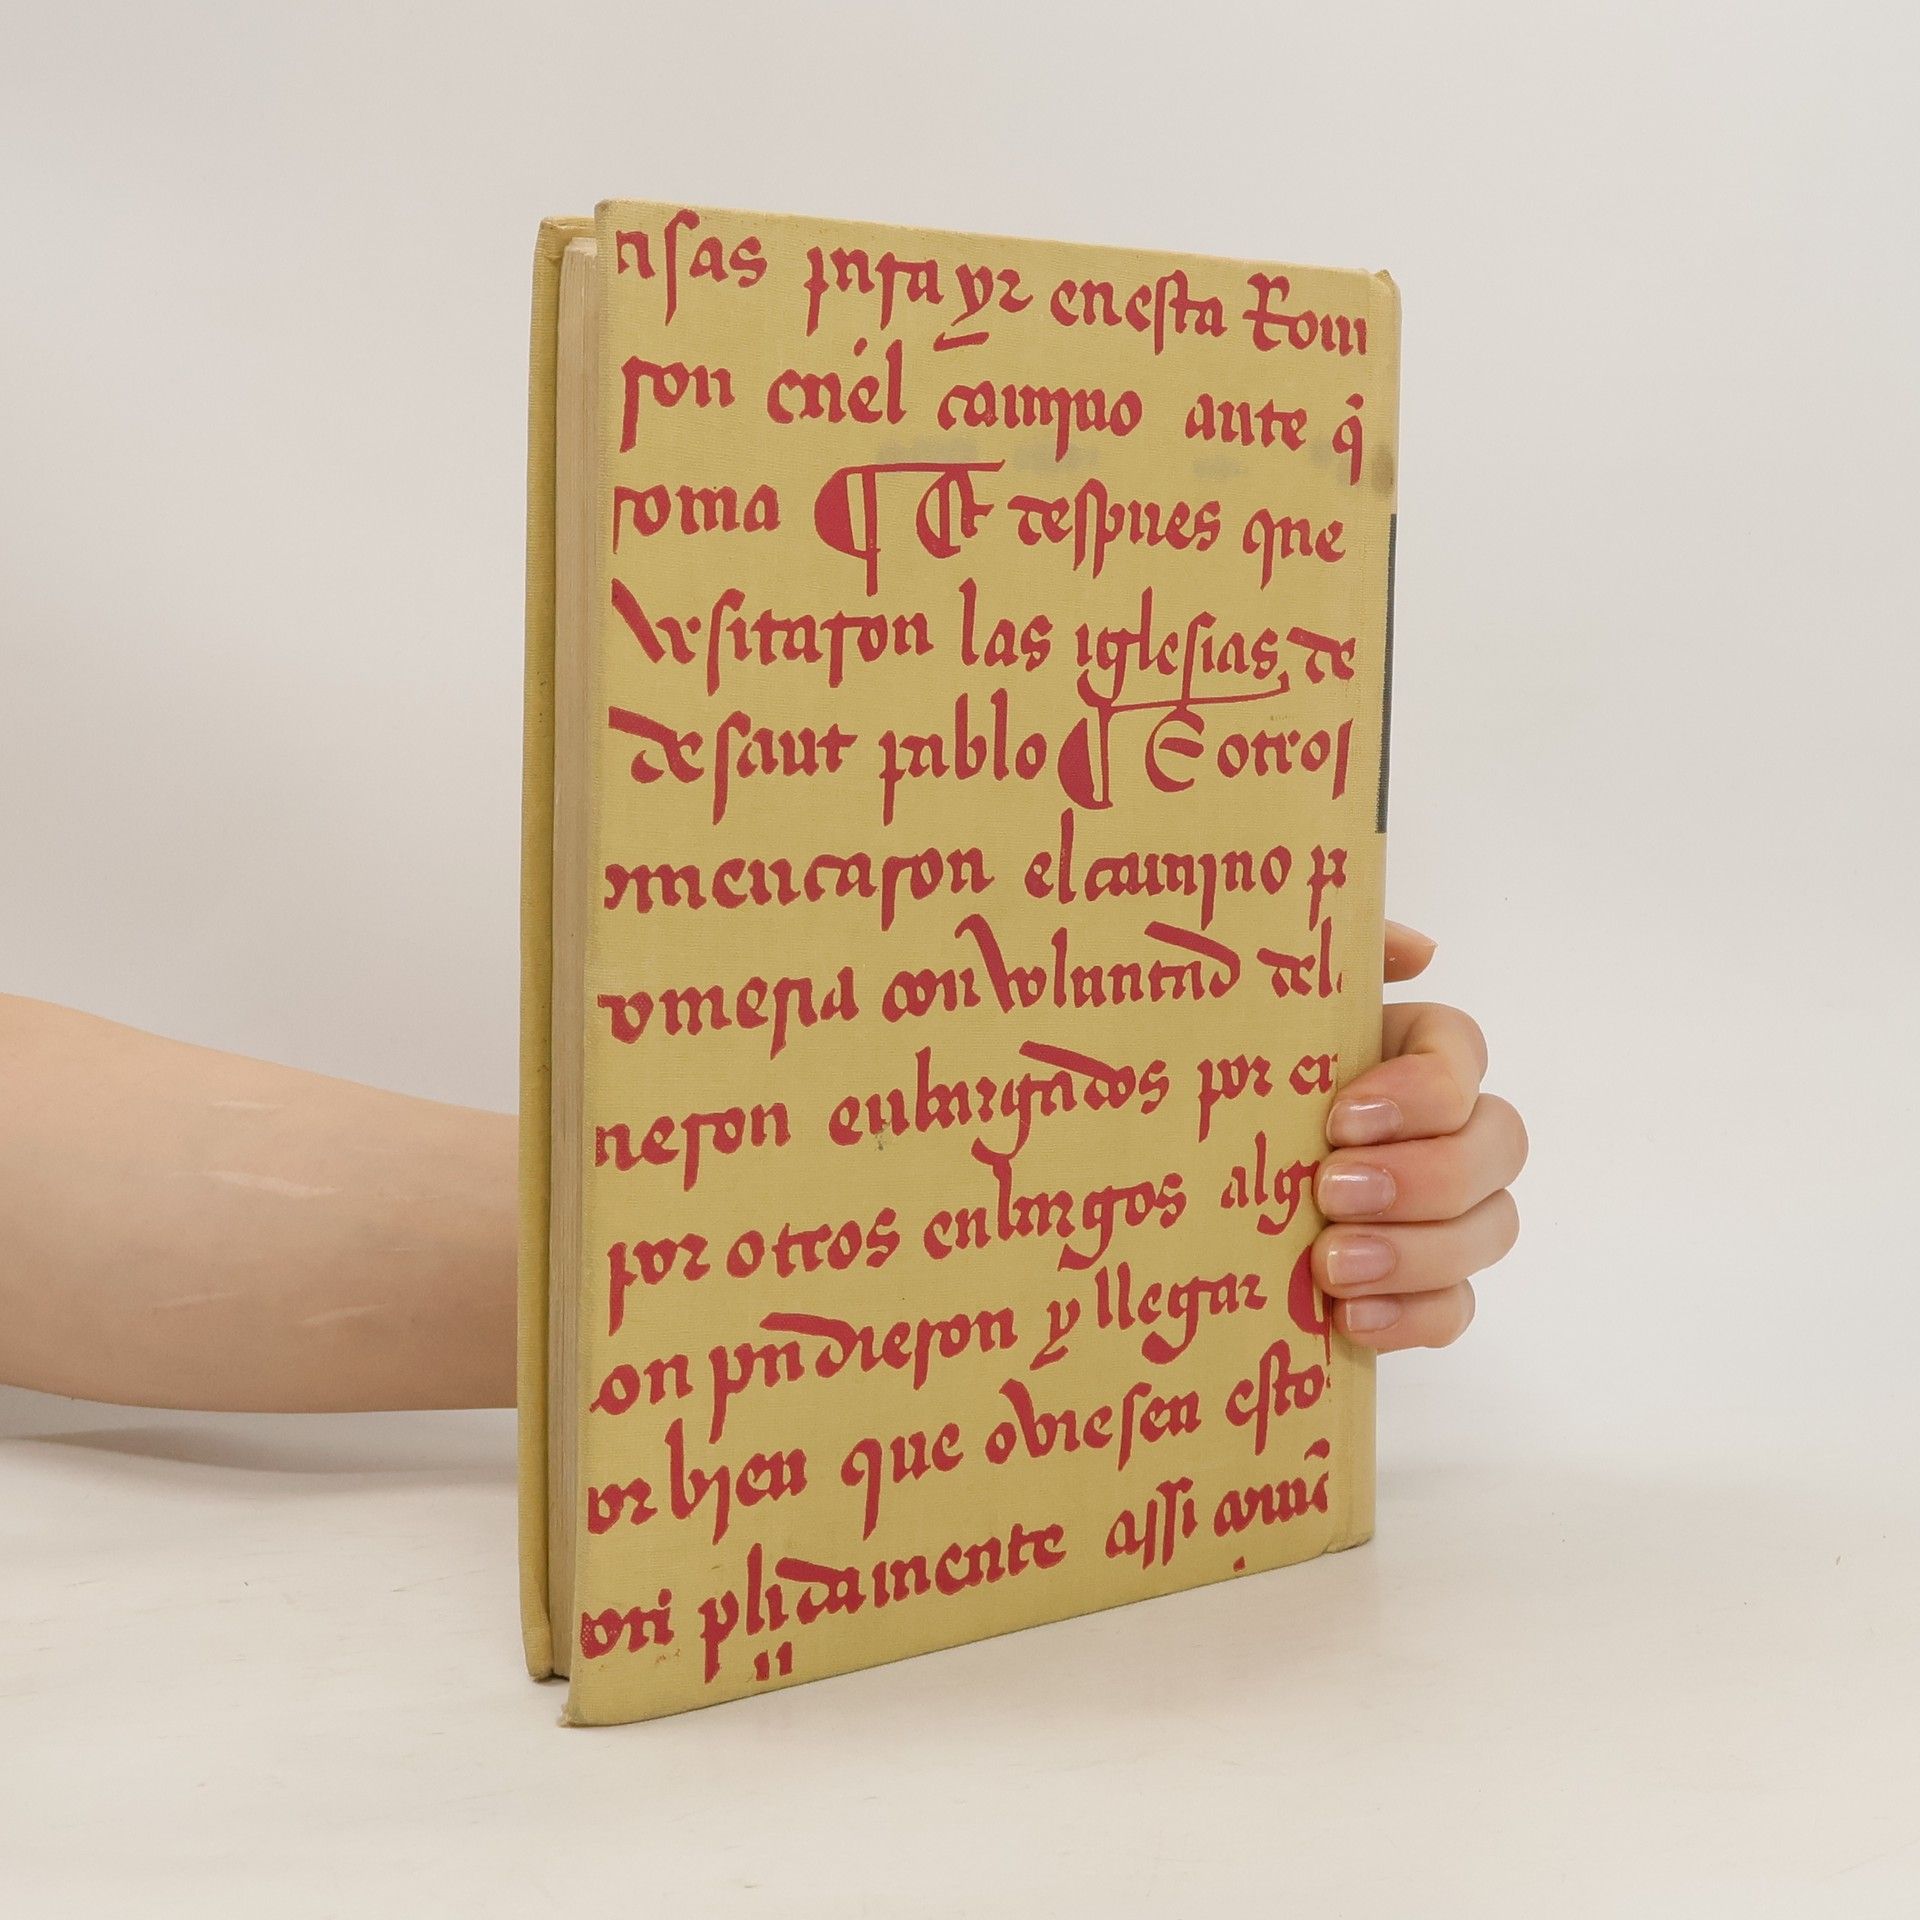 nsas para yr enesta Rom
ron enel camino ante q̃
roma ¶ Et despues que
visitaron las iglesias de
de sant pablo ¶ E otros
omencaron el camino p
omeria con voluntad del
neron enbargados por en
por otros enbargos alg
on pudieron y llegar ¶
or bien que oviesen esto
on plidamente assi com